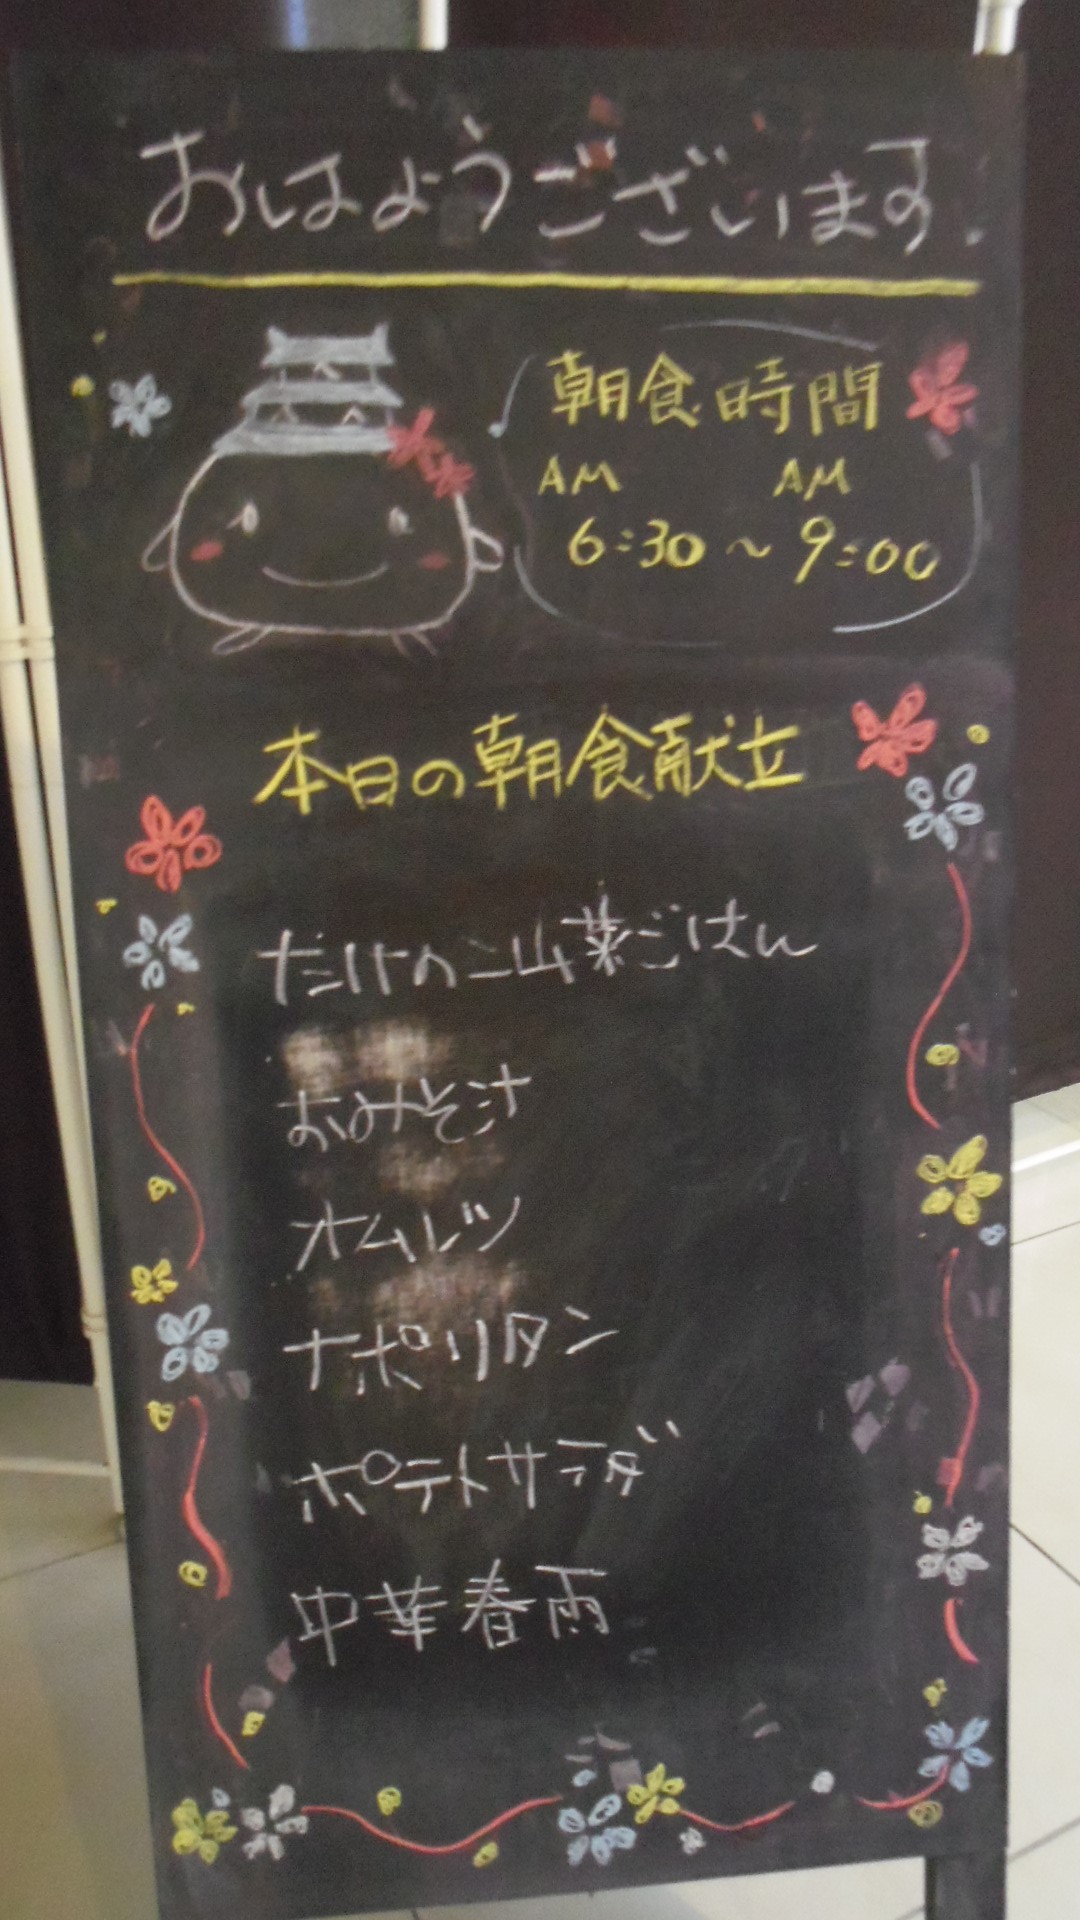 おはようございます
朝食時間
AM AM
6:30～9:00
本日の朝食献立
たけのこ山菜ごはん
おみそ汁
オムレツ
ナポリタン
ポテトサラダ
中華春雨